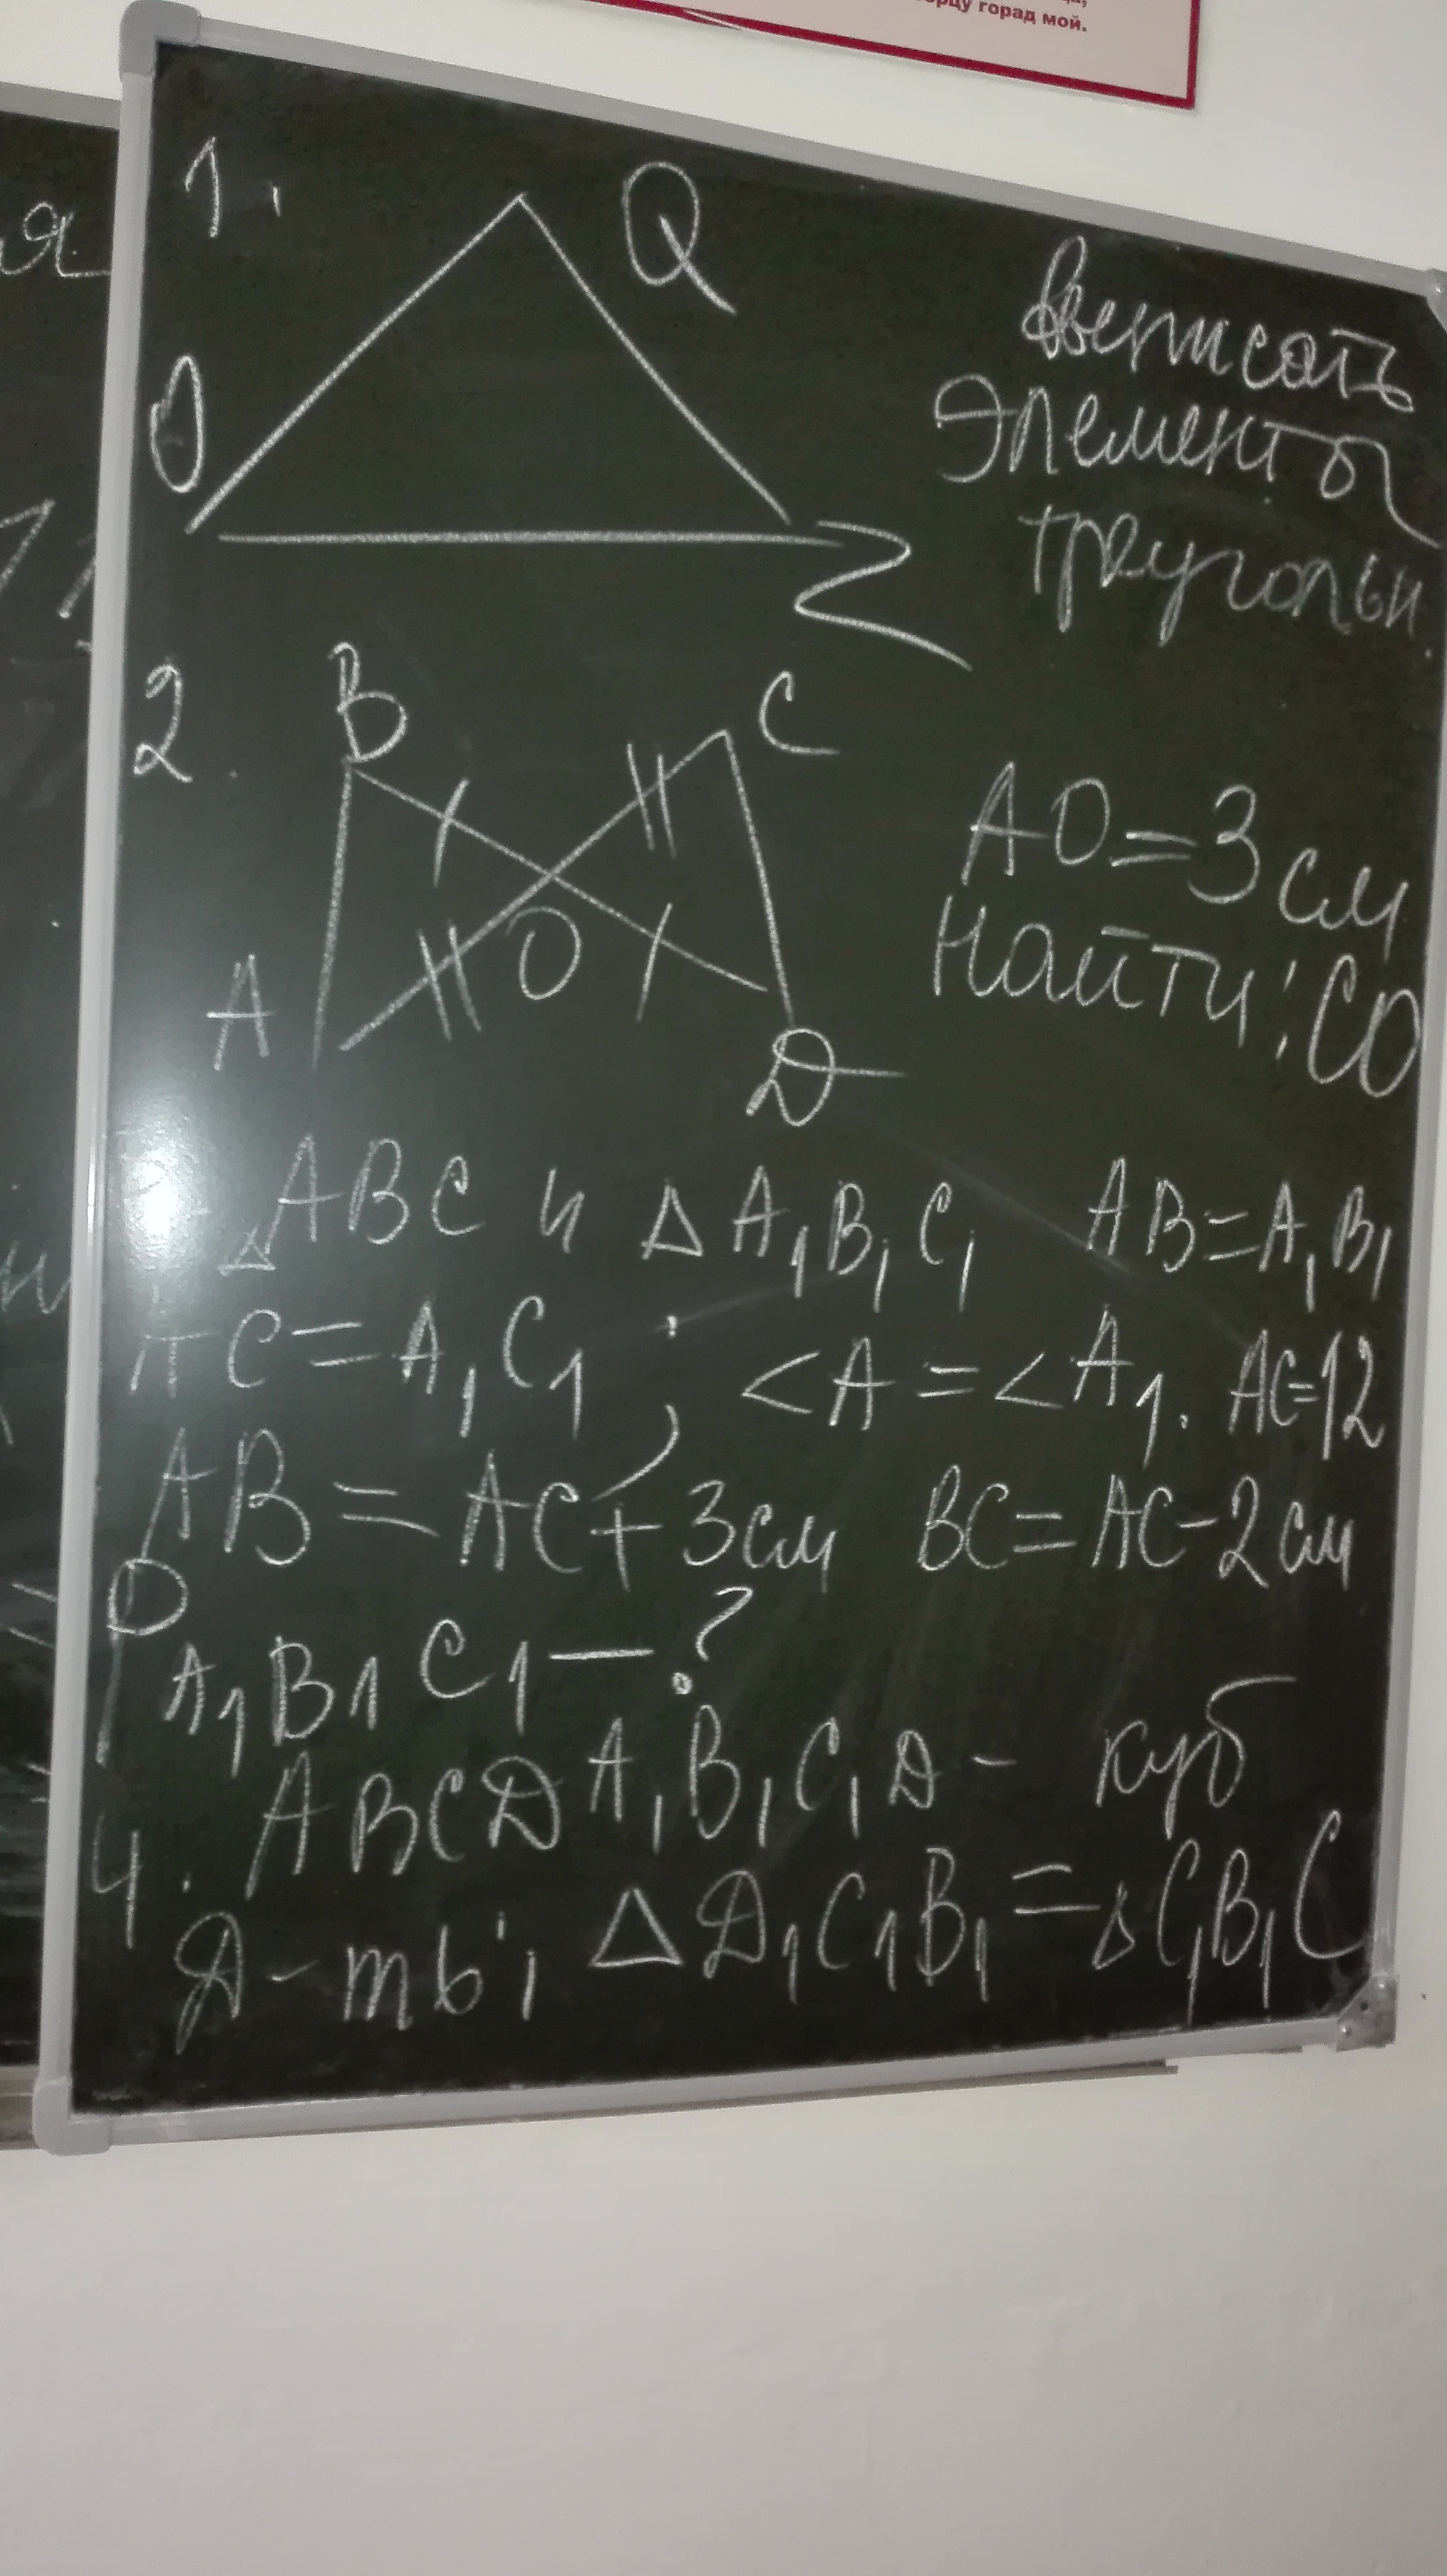 орцу горад мой.
1.
Q
O
Z
выписать
элементы
треугольн.
2.
B
C
A
O
D
AO=3см
Найти: CO
△ABC и △A₁B₁C₁ AB=A₁B₁
AC=A₁C₁; <A=<A₁. AC=12
AB=AC+3см BC=AC-2см
P A₁B₁C₁-?
4. ABCDA₁B₁C₁D- куб
Д-ть; △D₁C₁B₁=△C₁B₁C